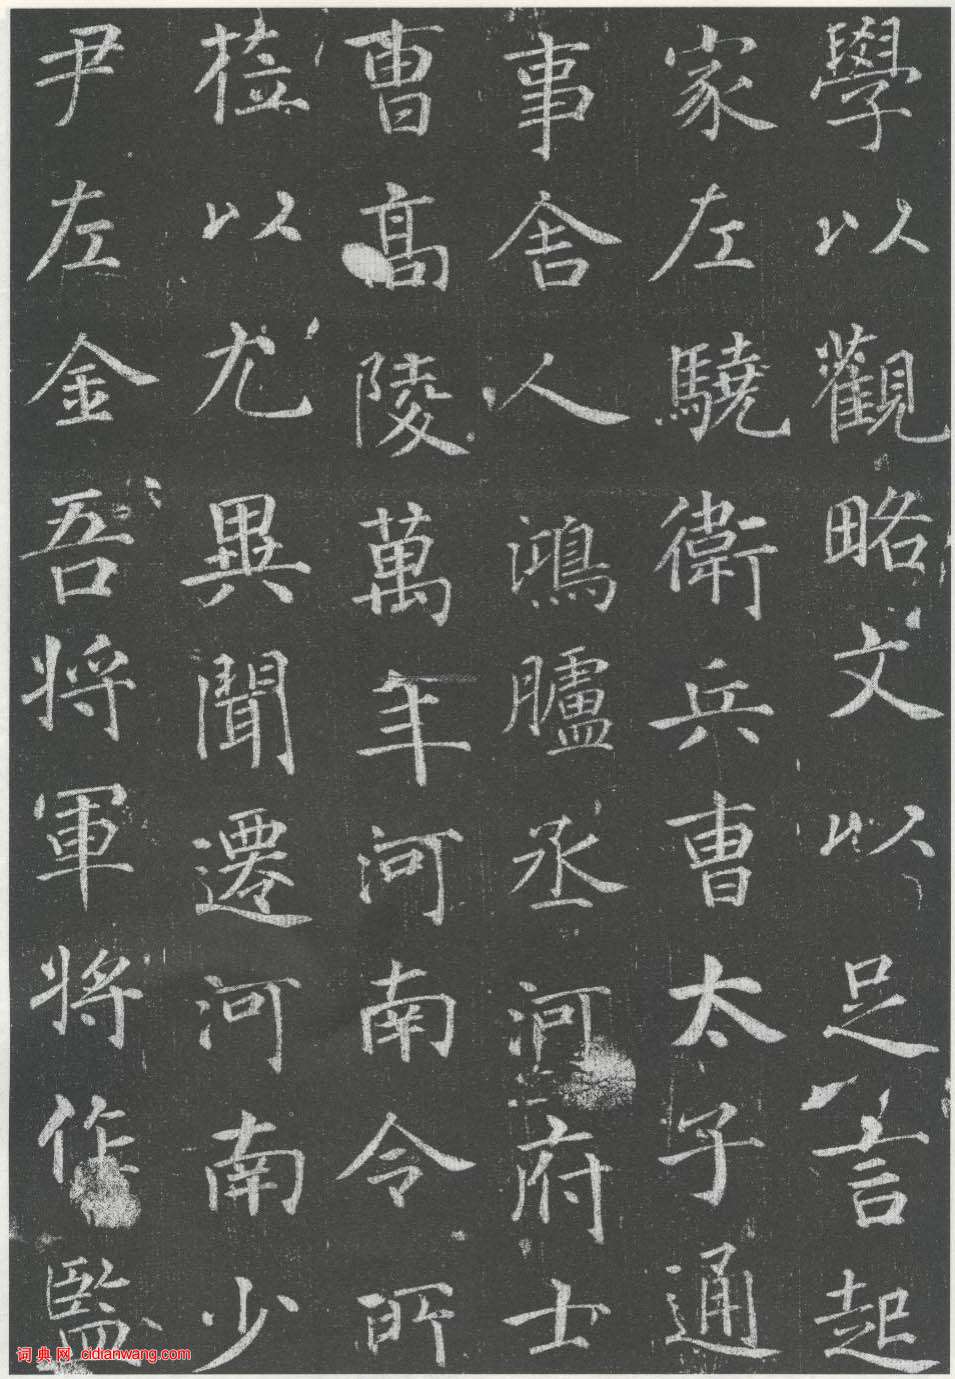 學以觀略文以足言起
家左驍衛兵曹太子通
事舍人鴻臚丞河府士
曹髙陵萬年河南令所
以尤異聞遷河南少
尹左金吾将軍将作監
词典网 cidianwang.com